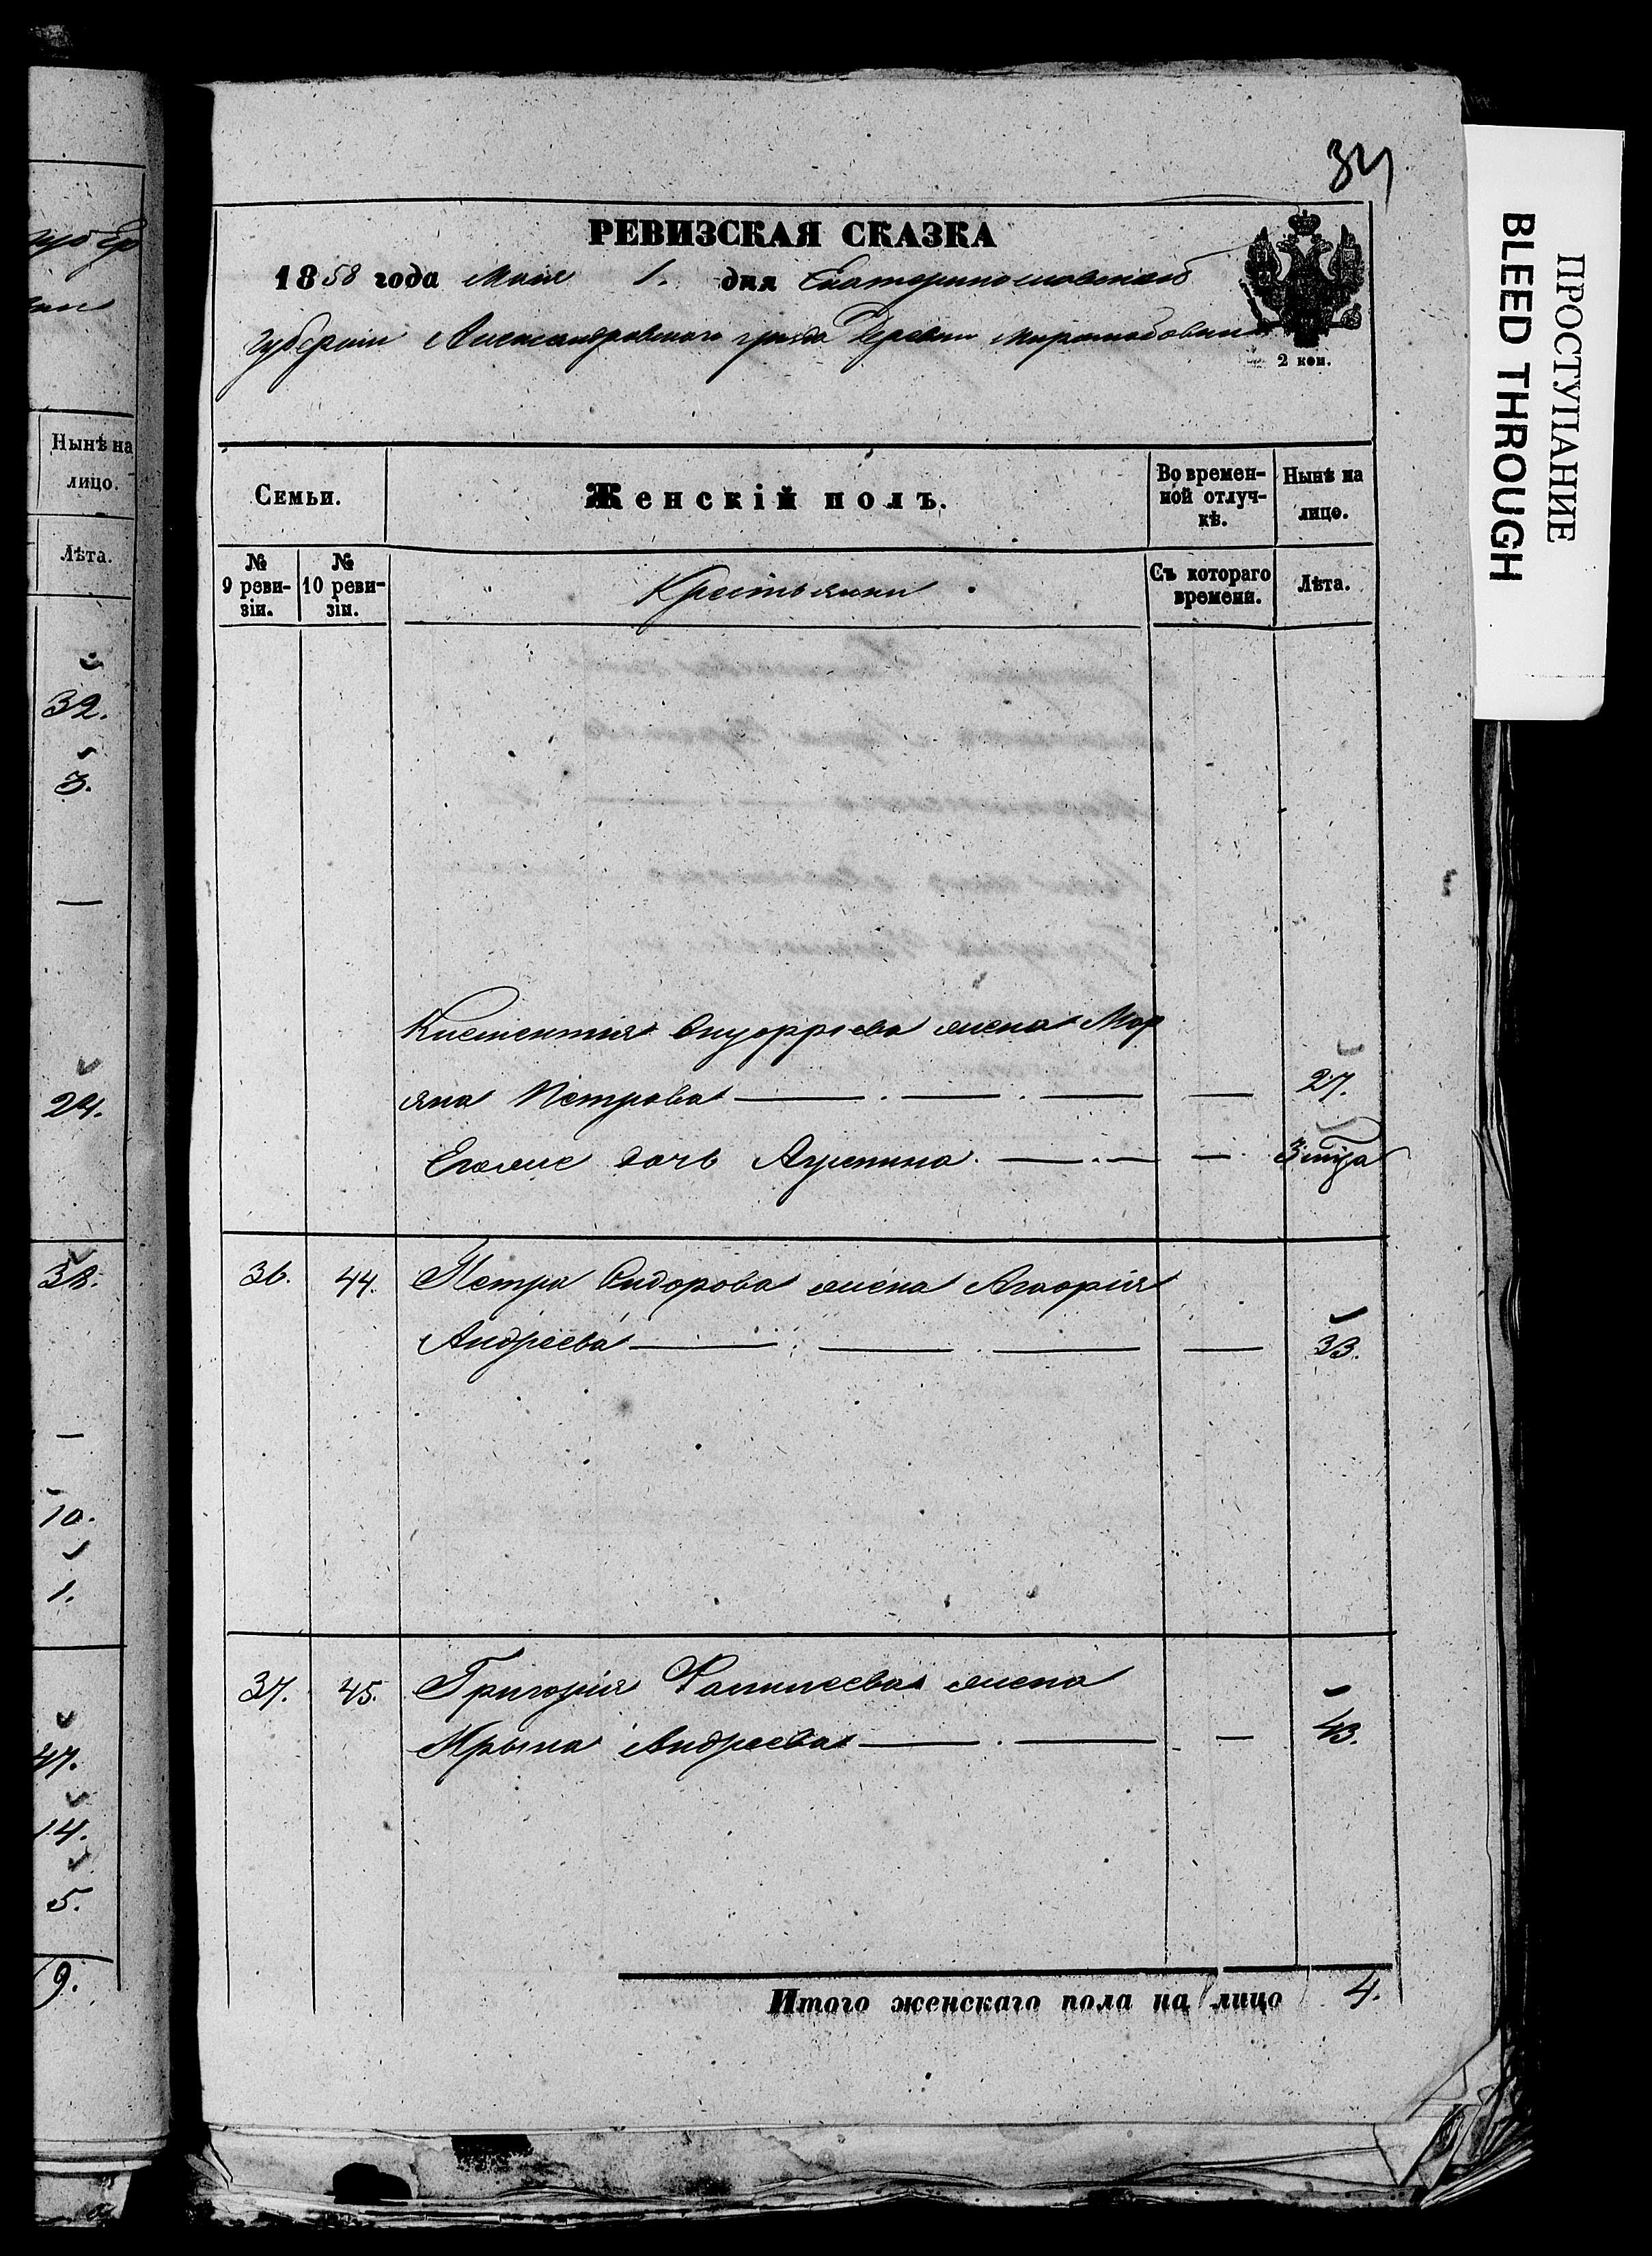 убер
Нынѣ на
лицо.
Лѣта.
32.
3.
—
24.
38.
—
10.
1.
47.
14.
5.
9.
34
РЕВИЗСКАЯ СКАЗКА
1858 года Мая 1. дня Екатеринославской
губерніи Александровского уѣзда Деревни
2 коп.
Семьи.
Женскій полъ.
Во времен-
ной отлуч-
кѣ.
Нынѣ на
лицо.
№
9 реви-
зіи.
№
10 реви-
зіи.
Крестьянки
Съ котораго
времени.
Лѣта.
жена Мар
яна Петрова — . — . — — 27.
Его же дочь — . — — . 3
36. 44. Петра Сидорова жена Агафія
Андреева — . — . — — 33.
37. 45. Григорія жена
Ирына Андреева — . — — 43.
Итого женскаго пола на лицо 4.
ПРОСТУПАНИЕ
BLEED THROUGH